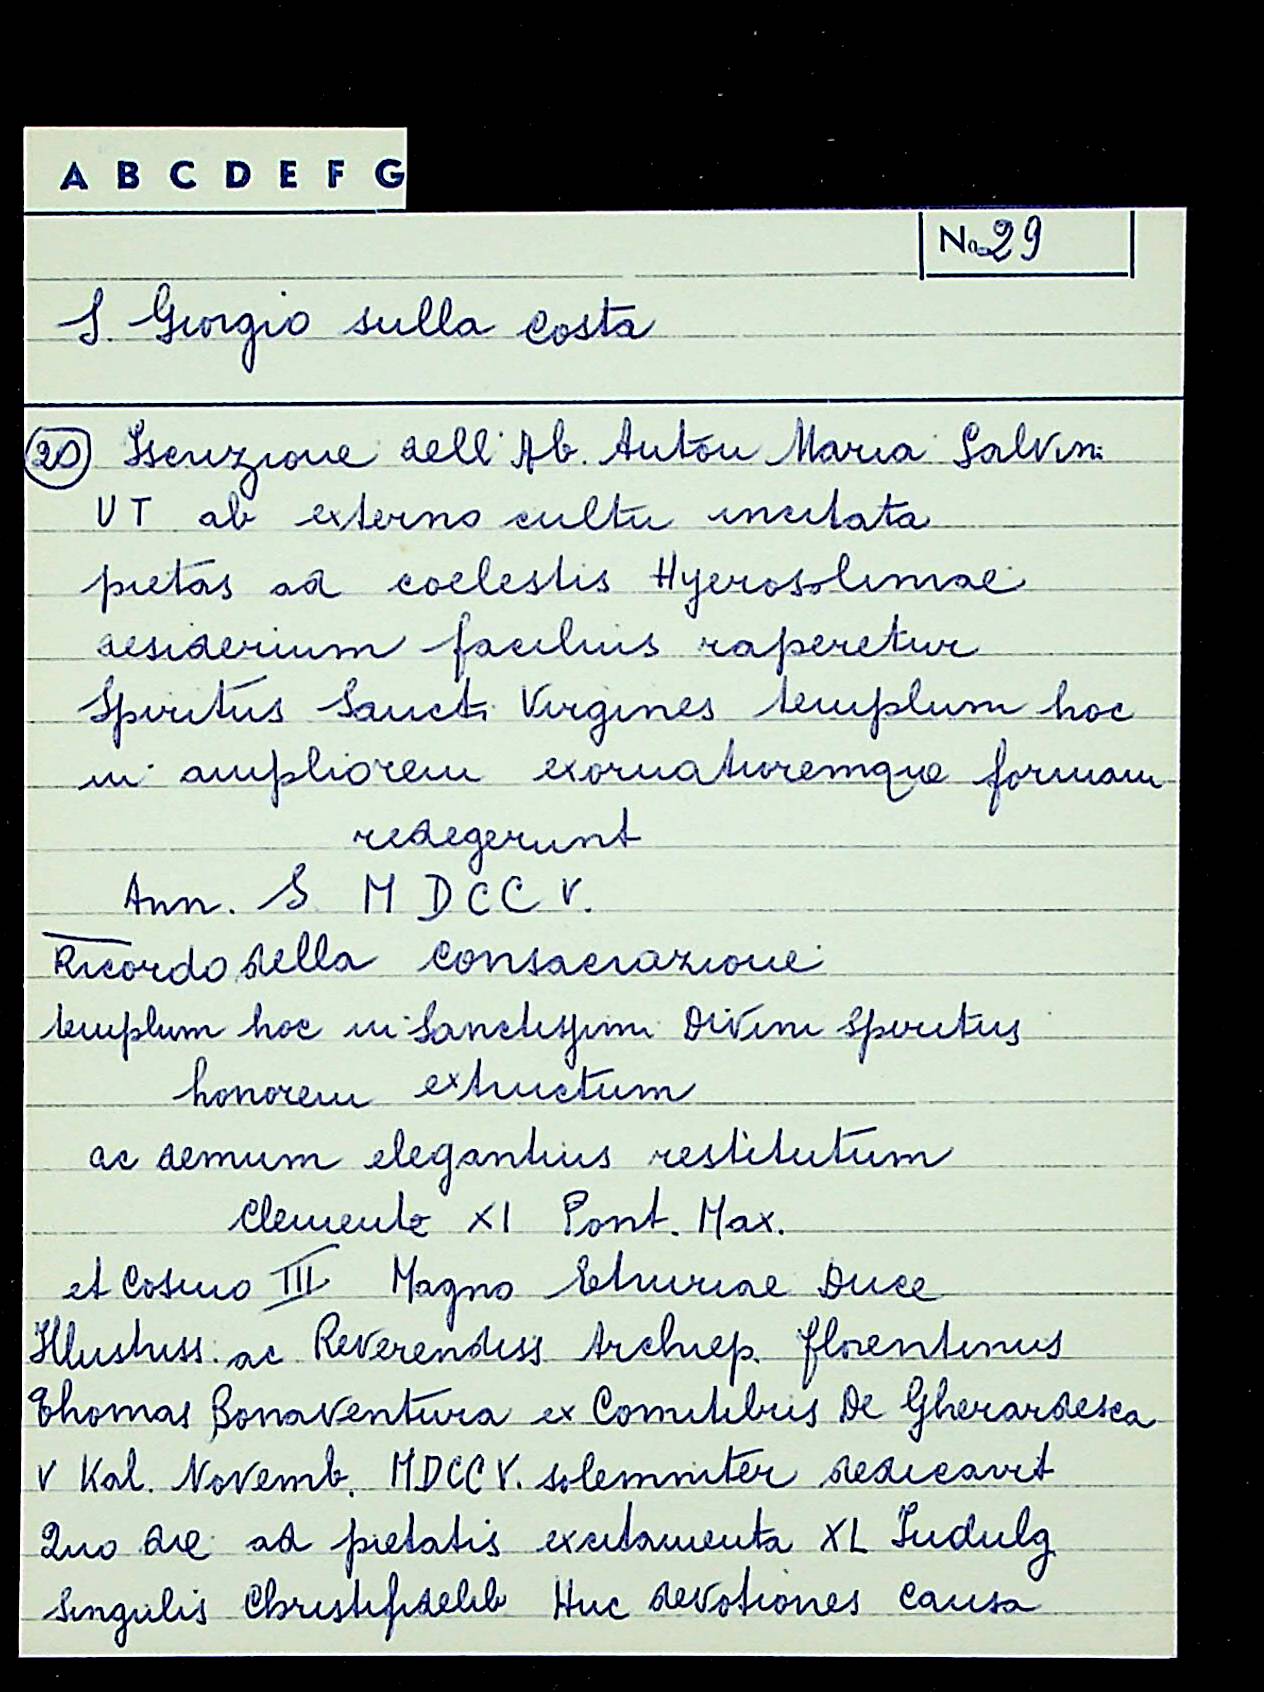 A B C D E F G
No 29
S. Giorgio sulla Costa
20 Iscrizione dell'Ab. Anton Maria Salvini
UT ab externo cultu incitata
pietas ad coelestis Hyerosolimae
desiderium facilius raperetur
Spiritus Sancti Virgines templum hoc
in ampliorem exornatioremque formam
redegerunt
Ann. S MDCCV.
Ricordo della consacrazione
templum hoc in Sanctissimi Divini Spiritus
honorem extructum
ac demum elegantius restitutum
Clemente XI Pont. Max.
et Cosmo III Magno Etruriae Duce
Illustriss. ac Reverendiss Archiep. florentinus
Thomas Bonaventura ex Comitibus De Gherardesca
V Kal. Novemb. MDCCV. solemniter dedicavit
Quo die ad pietatis excitamenta XL Indulg
singulis Christifidelib Huc devotiones causa